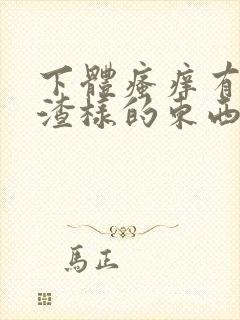 下體瘙痒有
渣樣的東西
馬正